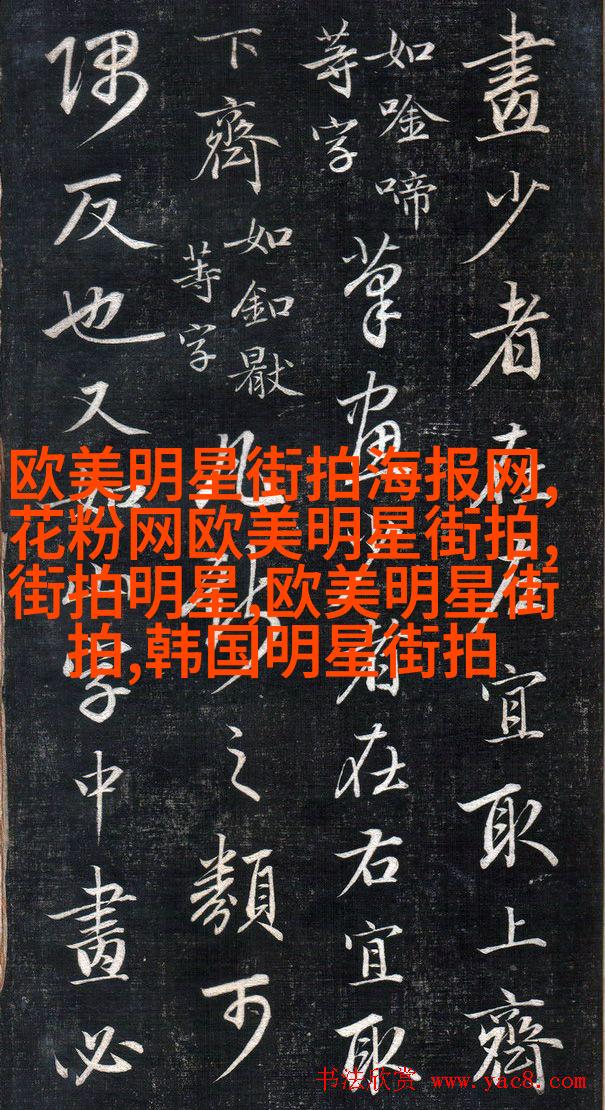 畫少者在左宜取上齊
如唫啼
等字
筆畫少者在右宜取
下齊
如釦
等字
凡之類可
隅反也又如中字中畫必
欧美明星街拍海报网,
花粉网欧美明星街拍,
街拍明星,欧美明星街
拍,韩国明星街拍
书法欣赏 www.yac8.com